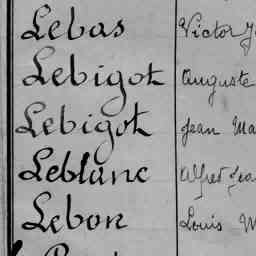 Lebas Victor
Lebigot Auguste
Lebigot Jean Ma
Leblanc Alfred Jea
Lebon Louis M